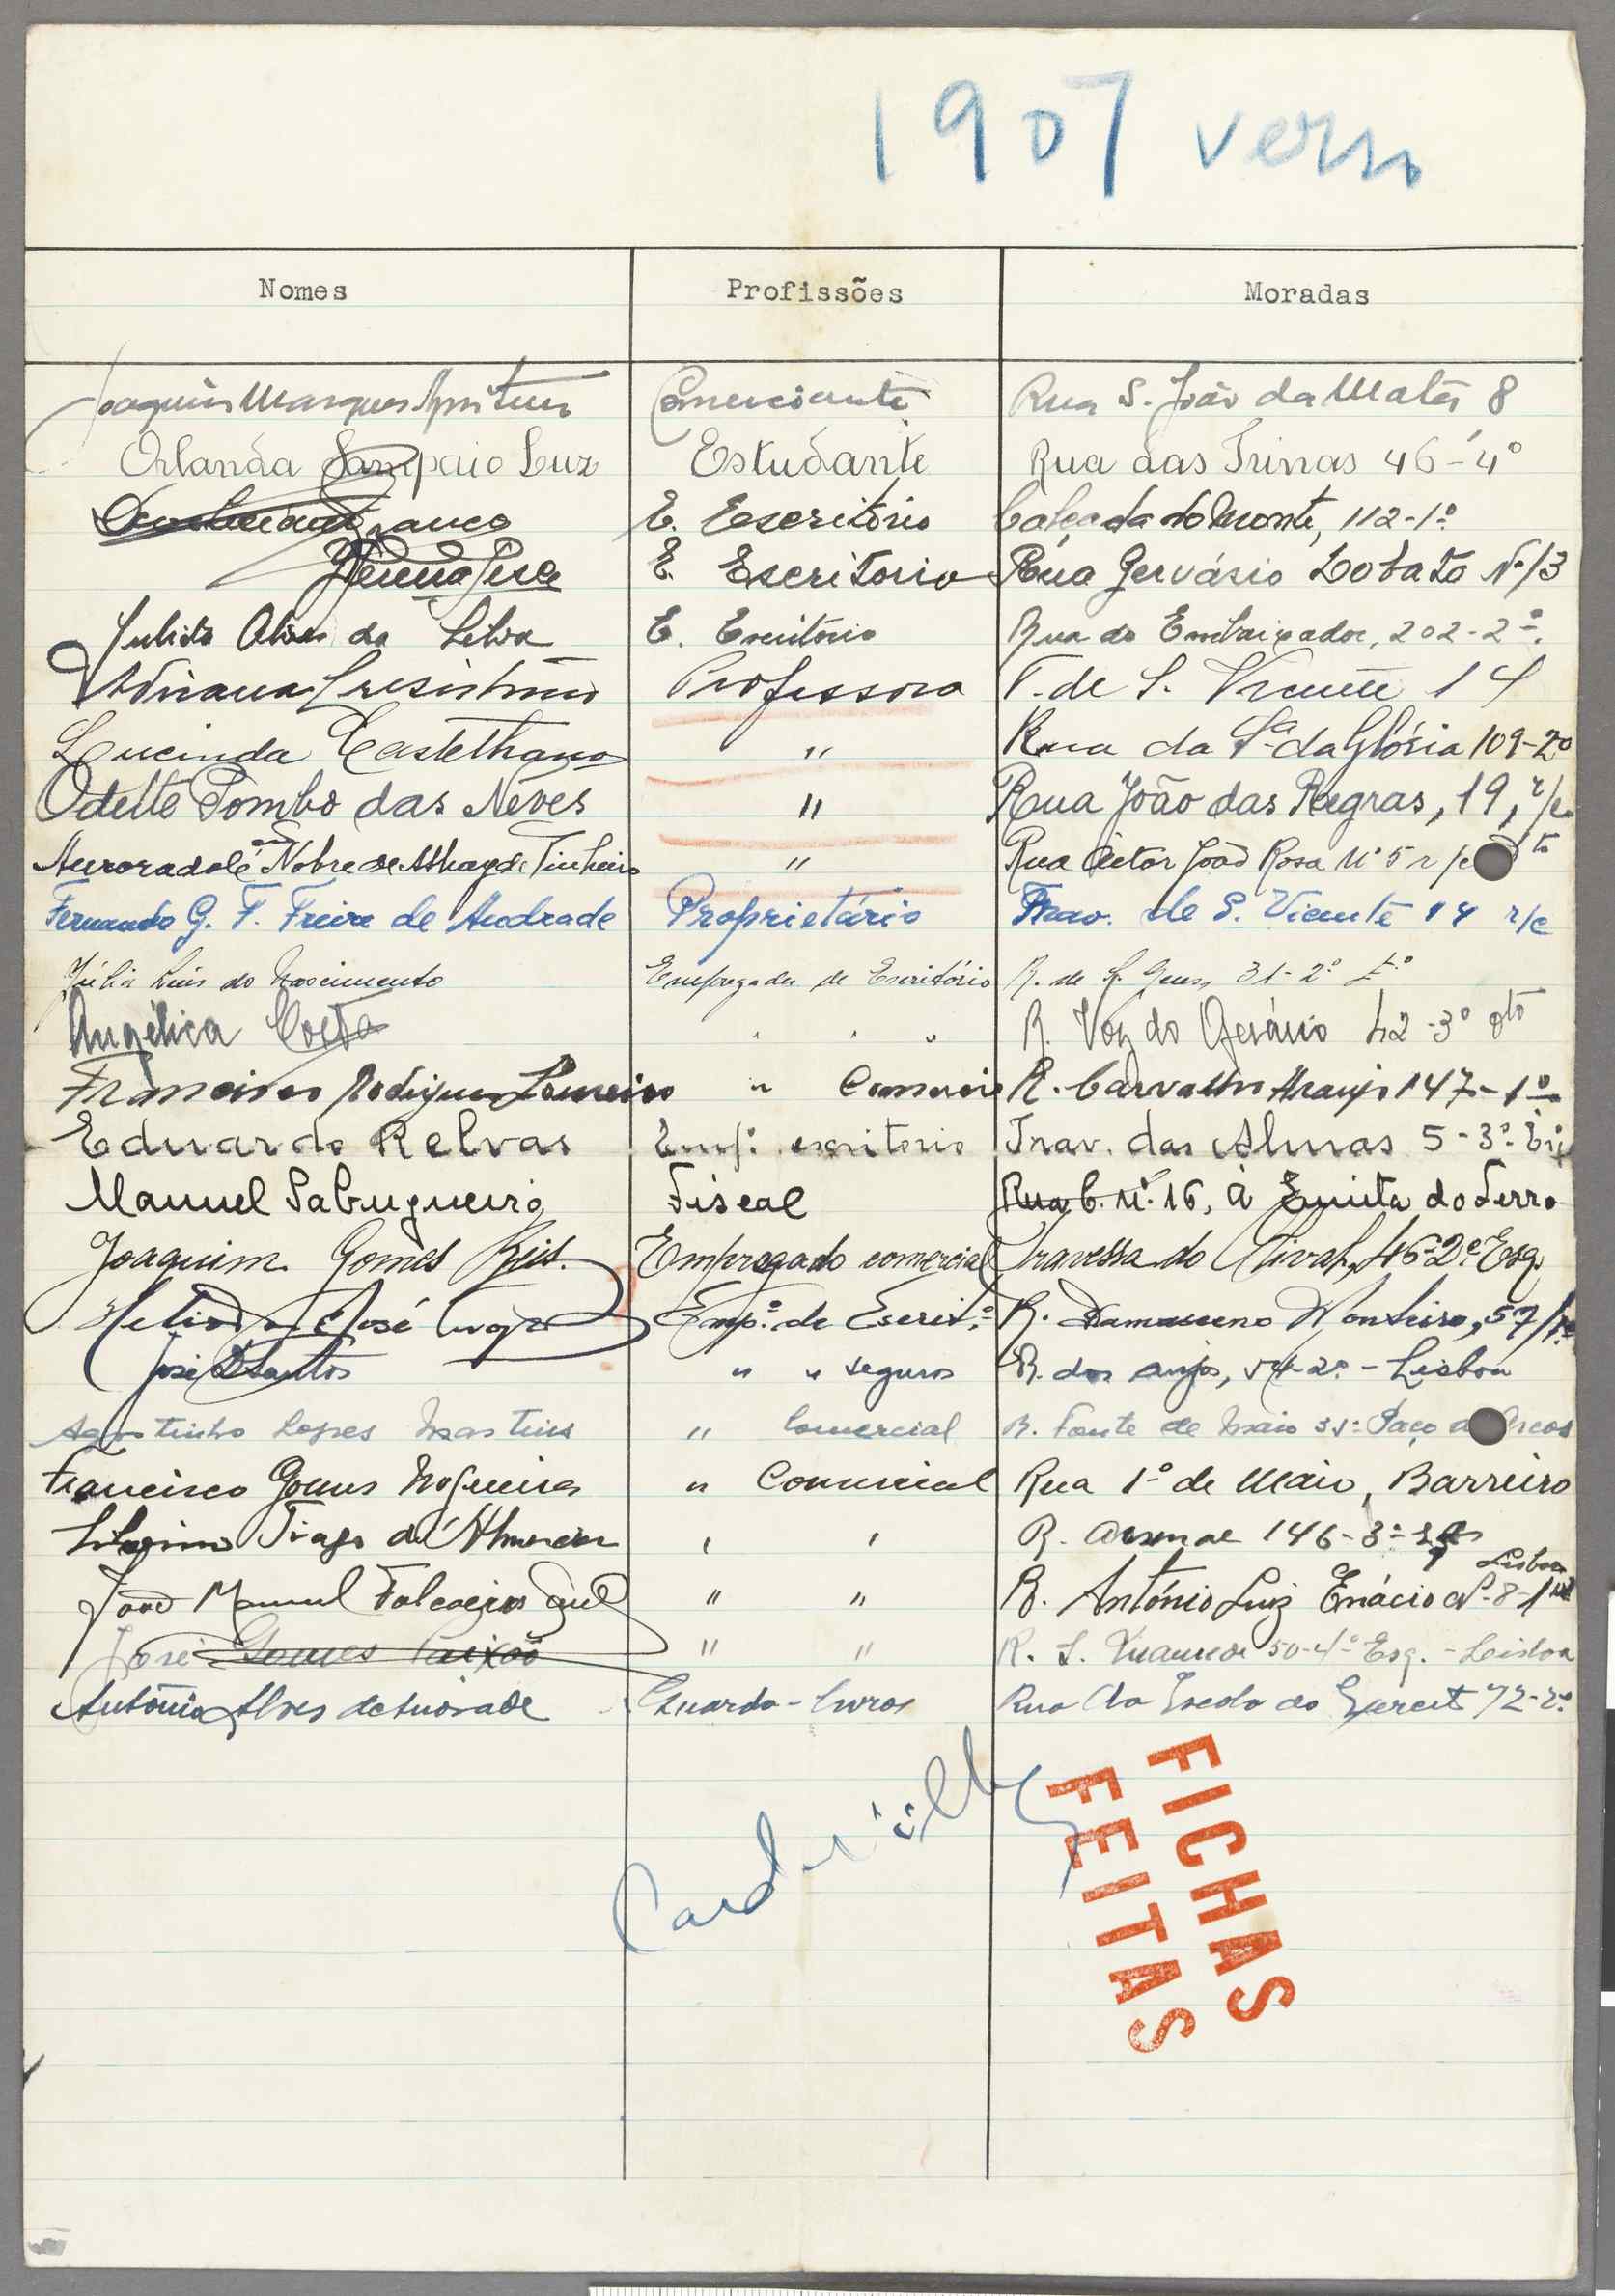 1907 verso
Nomes Profissões Moradas
Joaquim Marques Comerciante Rua S. João da Mata 8
Orlanda Sampaio Luz Estudante Rua das Trinas 46-4º
E. Escritório Calçada do Monte, 112-1º
E. Escritorio Rúa Gervásio Lobato Nº 13
Alves da Silva E. Escritório Rua do Embaixador, 202-2º.
Adriana Professora T. de S. Vicente 14
Lucinda Castelhano " Rua da Sª da Glória 109-2º
Odette Pombo das Neves " Rua João das Regras, 19, r/c
Aurora Nobre de Athayde Pinheiro " Rua Actor João Rosa Nº 5 r/c dto
Fernando G. F. Freire de Andrade Proprietário Trav. de S. Vicente 14 r/c
Júlia Luís do Nascimento Empregada de Escritório R. de S. 31-2º
Angélica Costa " " " R. Voz do Operário 42-3º dto
Francisco Rodrigues Loureiro " Comercio R. Carvalho Araujo 147-1º
Eduardo Relvas Empº. escritorio Trav. das Almas 5-3º. Esq
Manuel Sabugueiro Fiscal Rua C. Nº. 16, à Quinta do Ferro
Joaquim Gomes Reis. Empregado comercial Travessa do Olival, 46-2º Esq.
José Empº. de Escritº. R. Damasceno Monteiro, 57
José Santos " " seguros R. dos Anjos, 2º - Lisboa
Agostinho Lopes Martins " Comercial R. Fonte de Maio Paço de Arcos
Francisco Gomes Nogueira " Comercial Rua 1º de Maio, Barreiro
Tiago d'Almeida " " R. Arsenal 146-3º
Lisboa
João Manuel " " R. António Luiz Enácio Nº-8-1º
José Gomes Paixão " " R. S. 50-4º Esq. - Lisboa
António Alves de Andrade Guarda-livros Rua da Escola do Exercito 72-2º
FICHAS
FEITAS